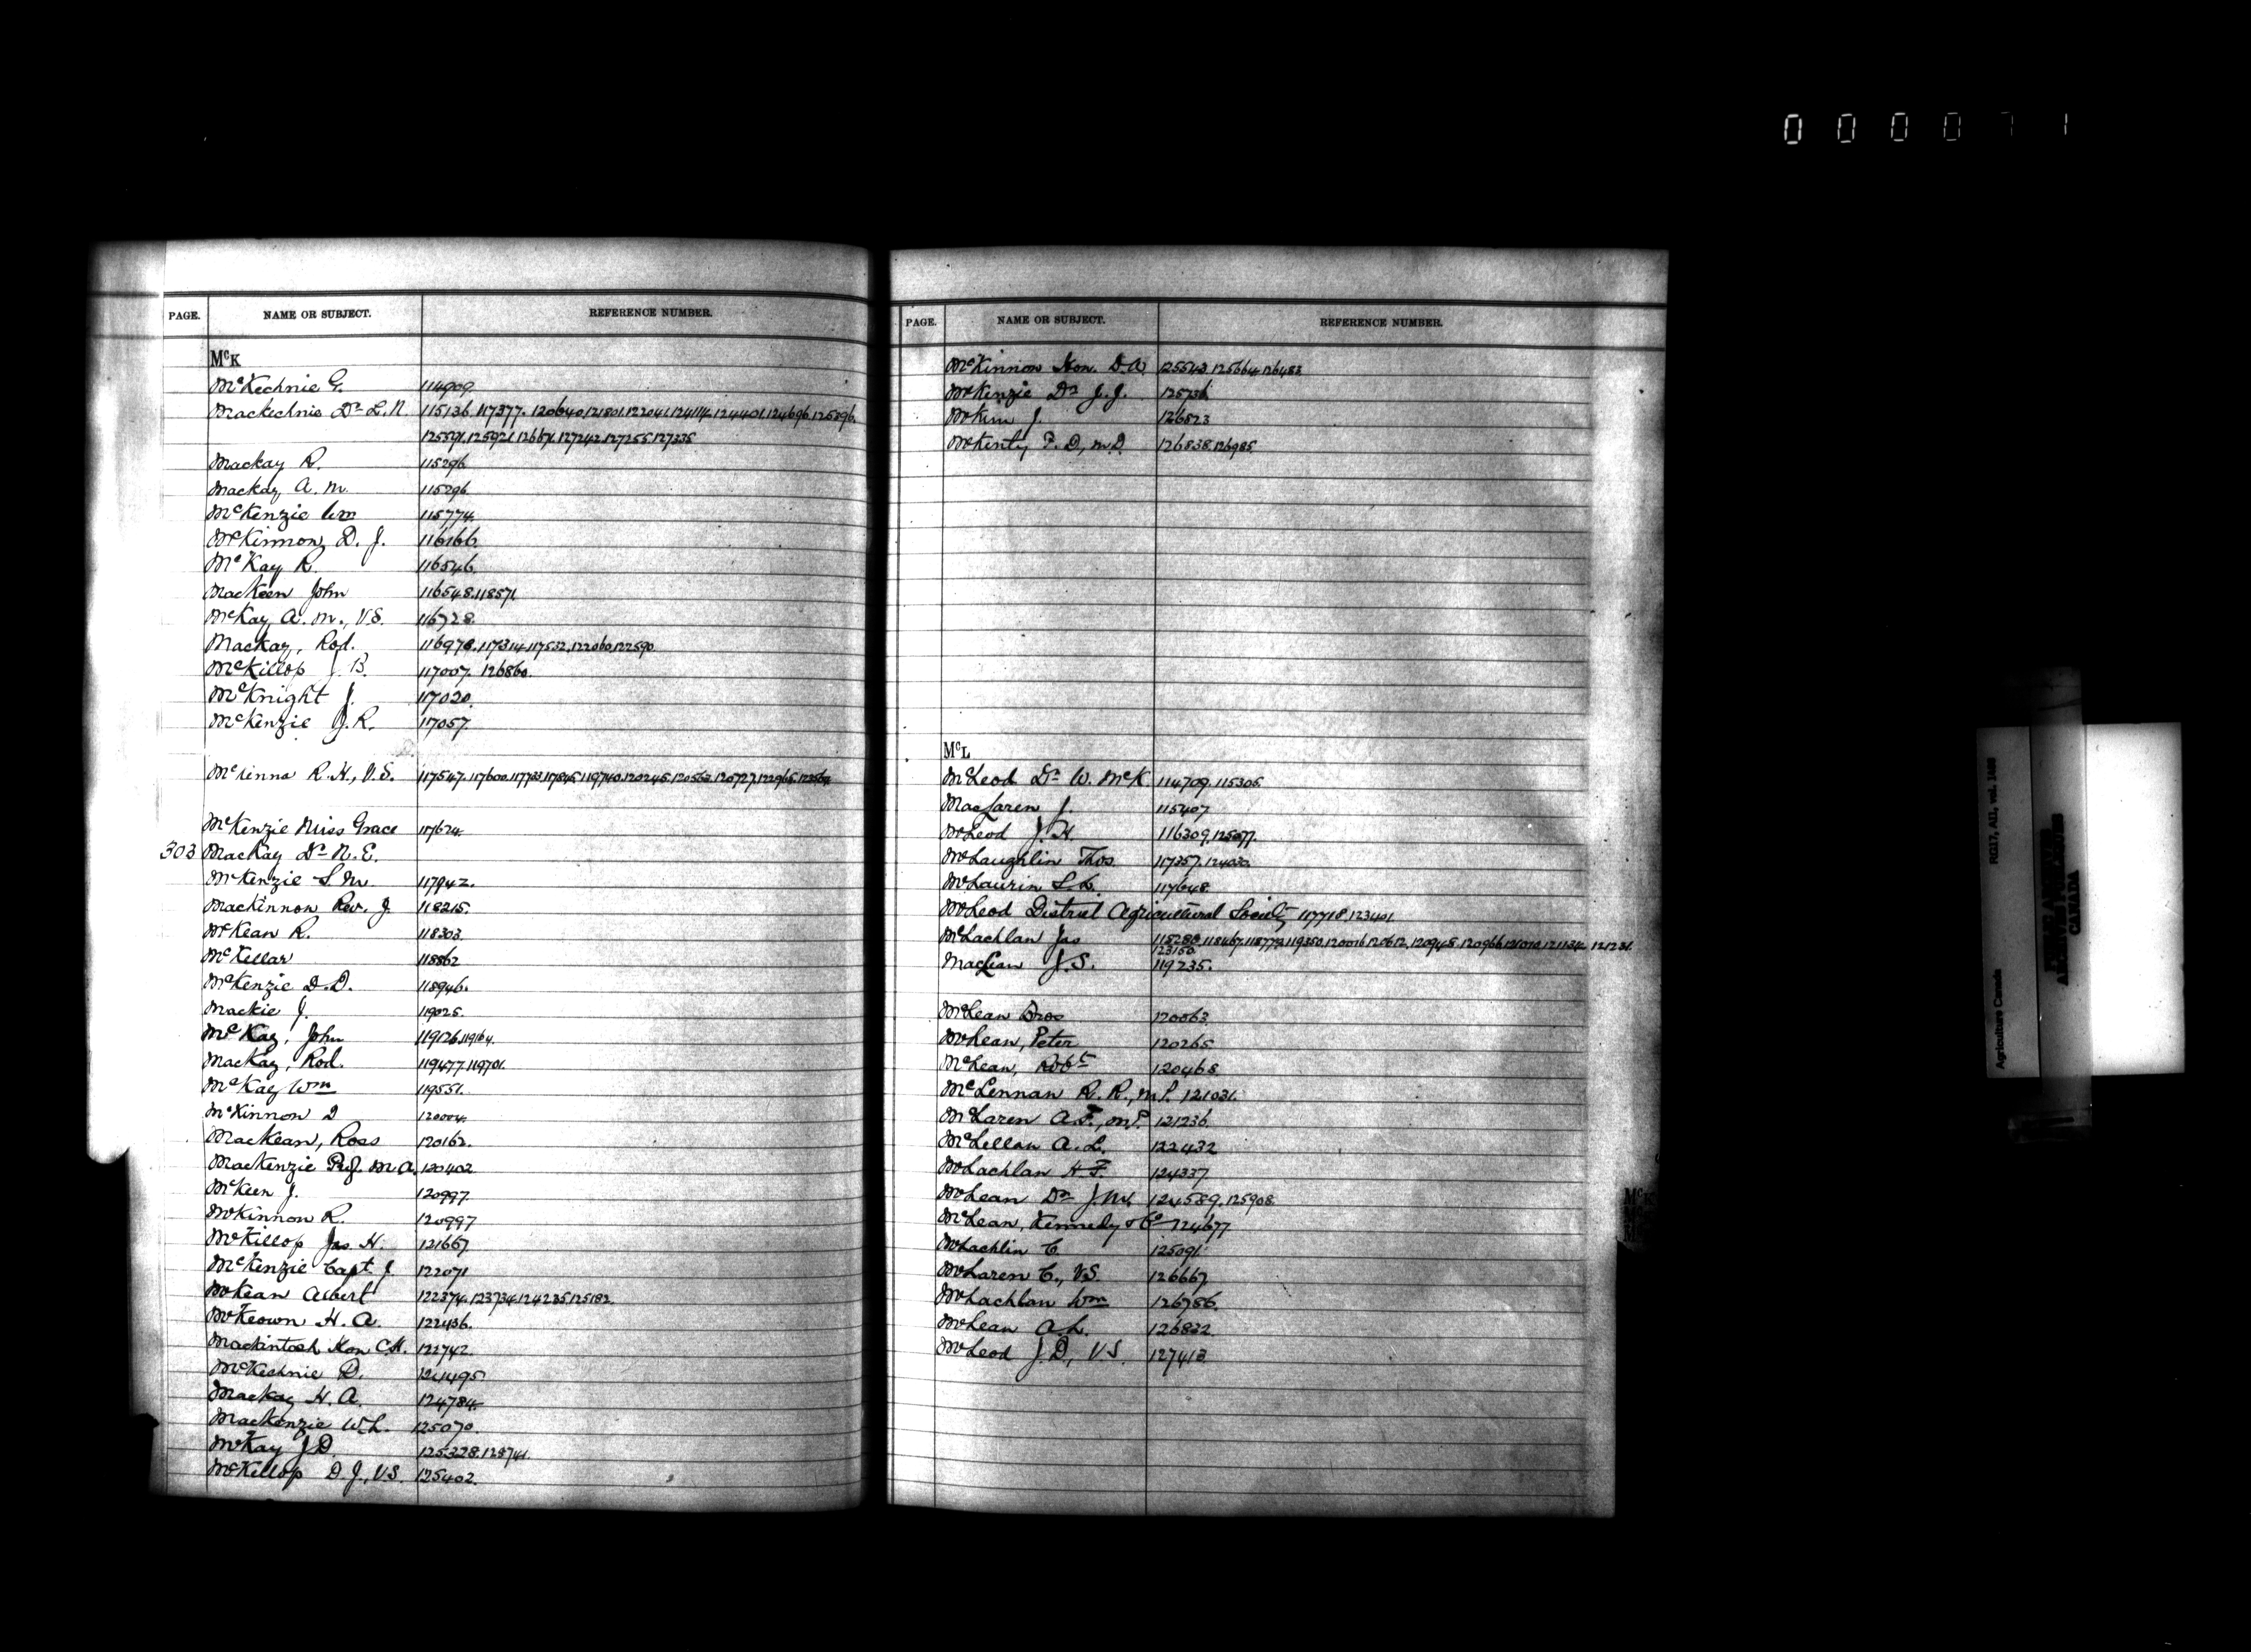 000071
PAGE. NAME OR SUBJECT. REFERENCE NUMBER.
McK
McKechnie G. 114909.
Mackechnie Dr L. N. 115136. 117377. 120640. 121801. 122041. 124114. 124401. 124696. 125896.
125591. 125921. 126671. 127242. 127255. 127335.
Mackay R. 115296
Mackay A. M. 115296.
McKenzie Wm 115774.
McKinnon, D. J. 116166.
McKay R. 116546.
MacKeen John 116548. 118571.
McKay A. M., V.S. 116728.
Mackay, Rod. 116978. 117314. 117532. 122060. 122590.
McKillop J. B. 117007. 126860.
McKnight J. 117020.
McKenzie J. R. 117057.
McKenna R. H., V.S. 117547. 117600. 117733. 117845. 119740. 120245. 120563. 120727. 122965.
McKenzie Miss Grace 117624.
303 Mackay Dr N. E.
McKenzie S. M. 117942.
Mackinnon Rev. J. 118215.
McKean R. 118303.
McKellar 118862
McKenzie D. D. 118946.
Mackie J. 119025.
McKay, John 119126. 119164.
Mackay, Rod. 119477. 119701.
McKay Wm 119551.
McKinnon D 120004.
MacKean, Ross 120162.
Mackenzie Prof. M. A. 120402.
McKeen J. 120997.
McKinnon R. 120997
McKillop Jas. H. 121667.
McKenzie Capt. J. 122071
McKean Albert 122374. 123734. 124235. 125182.
McKeown H. A. 122436.
Mackintosh Hon C.H. 122742.
McKechnie D. 124495
Mackay H. A. 124784.
Mackenzie W. L. 125070.
McKay J. D. 125328. 125741.
McKillop D. J., V.S. 125402.
PAGE. NAME OR SUBJECT. REFERENCE NUMBER.
McKinnon Hon. D. A. 125543. 125664. 126483.
McKenzie Dr J. J. 125736
McKim J. 126823
McKenty F. D., M.D. 126838. 126985.
McL
McLeod Dr W. McK. 114709. 115305.
MacLaren J. 115407
McLeod J. H. 116309. 125077.
McLaughlin Thos. 117357. 124030.
McLaurin L. L. 117648.
McLeod District Agricultural Society 117718. 123401.
McLachlan Jas 118288. 118467. 118772. 119350. 120016. 120612. 120948. 120966. 121010. 121134. 121231.
123150
MacLean J. S. 119235.
McLean Bros 120063.
McLean, Peter 120265
McLean, Robt 120468
McLennan R. R., M.P. 121031.
McLaren A. F., M.P. 121236.
McLellan A. L. 122432
McLachlan H. F. 124337.
McLean Dr J. M. 124589. 125908.
McLean, Kennedy & Co 124677
McLachlin C. 125091.
McLaren C., V.S. 126667.
McLachlan Wm 126786.
McLean A. L. 126832.
McLeod J. D., V.S. 127413
McK
Agriculture Canada RG17, AII, vol. 1488
PUBLIC ARCHIVES
ARCHIVES PUBLIQUES
CANADA